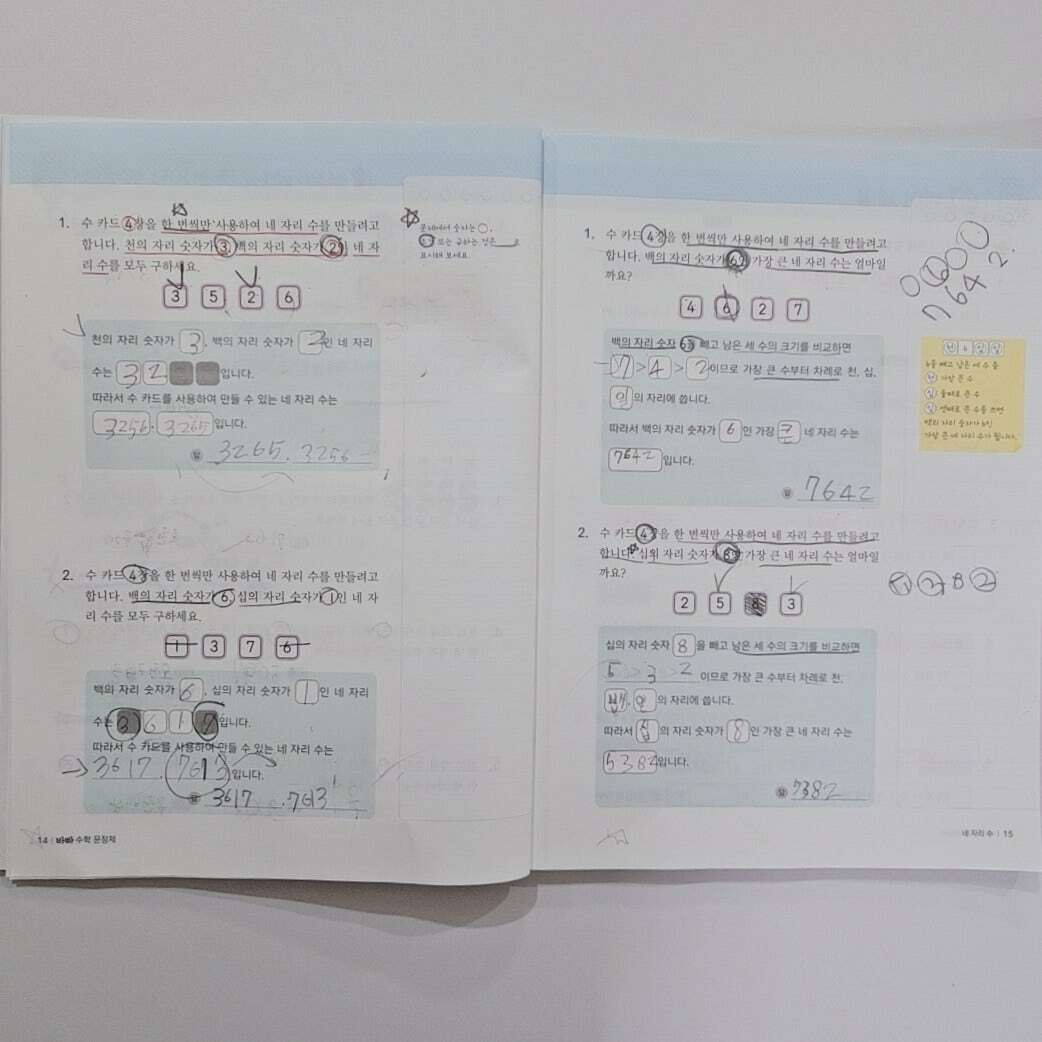 1. 수 카드 4장을 한 번씩만 사용하여 네 자리 수를 만들려고
합니다. 천의 자리 숫자가 3, 백의 자리 숫자가 2인 네 자
리 수를 모두 구하세요.
3 5 2 6
천의 자리 숫자가 3, 백의 자리 숫자가 2인 네 자리
수는 3 2 입니다.
따라서 수 카드를 사용하여 만들 수 있는 네 자리 수는
3256, 3265 입니다.
답 3265. 3256
문제에서 숫자는 ○,
또는 구하는 것은
표시해 보세요.
2. 수 카드 4장을 한 번씩만 사용하여 네 자리 수를 만들려고
합니다. 백의 자리 숫자가 6, 십의 자리 숫자가 1인 네 자
리 수를 모두 구하세요.
1 3 7 6
백의 자리 숫자가 6, 십의 자리 숫자가 1인 네 자리
수는 6 1 입니다.
따라서 수 카드를 사용하여 만들 수 있는 네 자리 수는
3617 7613 입니다.
답 3617 .7613
14 | 바빠 수학 문장제
1. 수 카드 4장을 한 번씩만 사용하여 네 자리 수를 만들려고
합니다. 백의 자리 숫자가 6인 가장 큰 네 자리 수는 얼마일
까요?
4 6 2 7
백의 자리 숫자 6을 빼고 남은 세 수의 크기를 비교하면
7 > 4 > 2 이므로 가장 큰 수부터 차례로 천, 십,
일의 자리에 씁니다.
따라서 백의 자리 숫자가 6인 가장 큰 네 자리 수는
7642 입니다.
답 7642
7642.
천 6 십 일
6을 빼고 남은 세 수 중
천 가장 큰 수
십 둘째로 큰 수
일 셋째로 큰 수를 쓰면
백의 자리 숫자가 6인
가장 큰 네 자리 수가 됩니다.
2. 수 카드 4장을 한 번씩만 사용하여 네 자리 수를 만들려고
합니다. 십의 자리 숫자가 8인 가장 큰 네 자리 수는 얼마일
까요?
2 5 8 3
십의 자리 숫자 8을 빼고 남은 세 수의 크기를 비교하면
5 > 3 > 2 이므로 가장 큰 수부터 차례로 천,
백, 일의 자리에 씁니다.
따라서 십의 자리 숫자가 8인 가장 큰 네 자리 수는
5382 입니다.
답 7382
네 자리 수 | 15